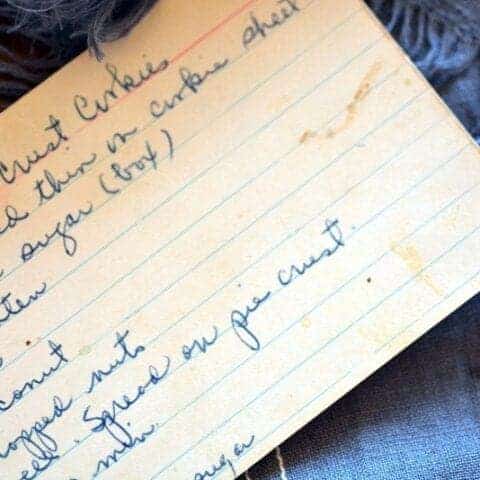 Crust Cookies
d thin on cookie sheet
sugar (box)
aten
conut
opped nuts
ell. Spread on pie crust.
min.
sugar